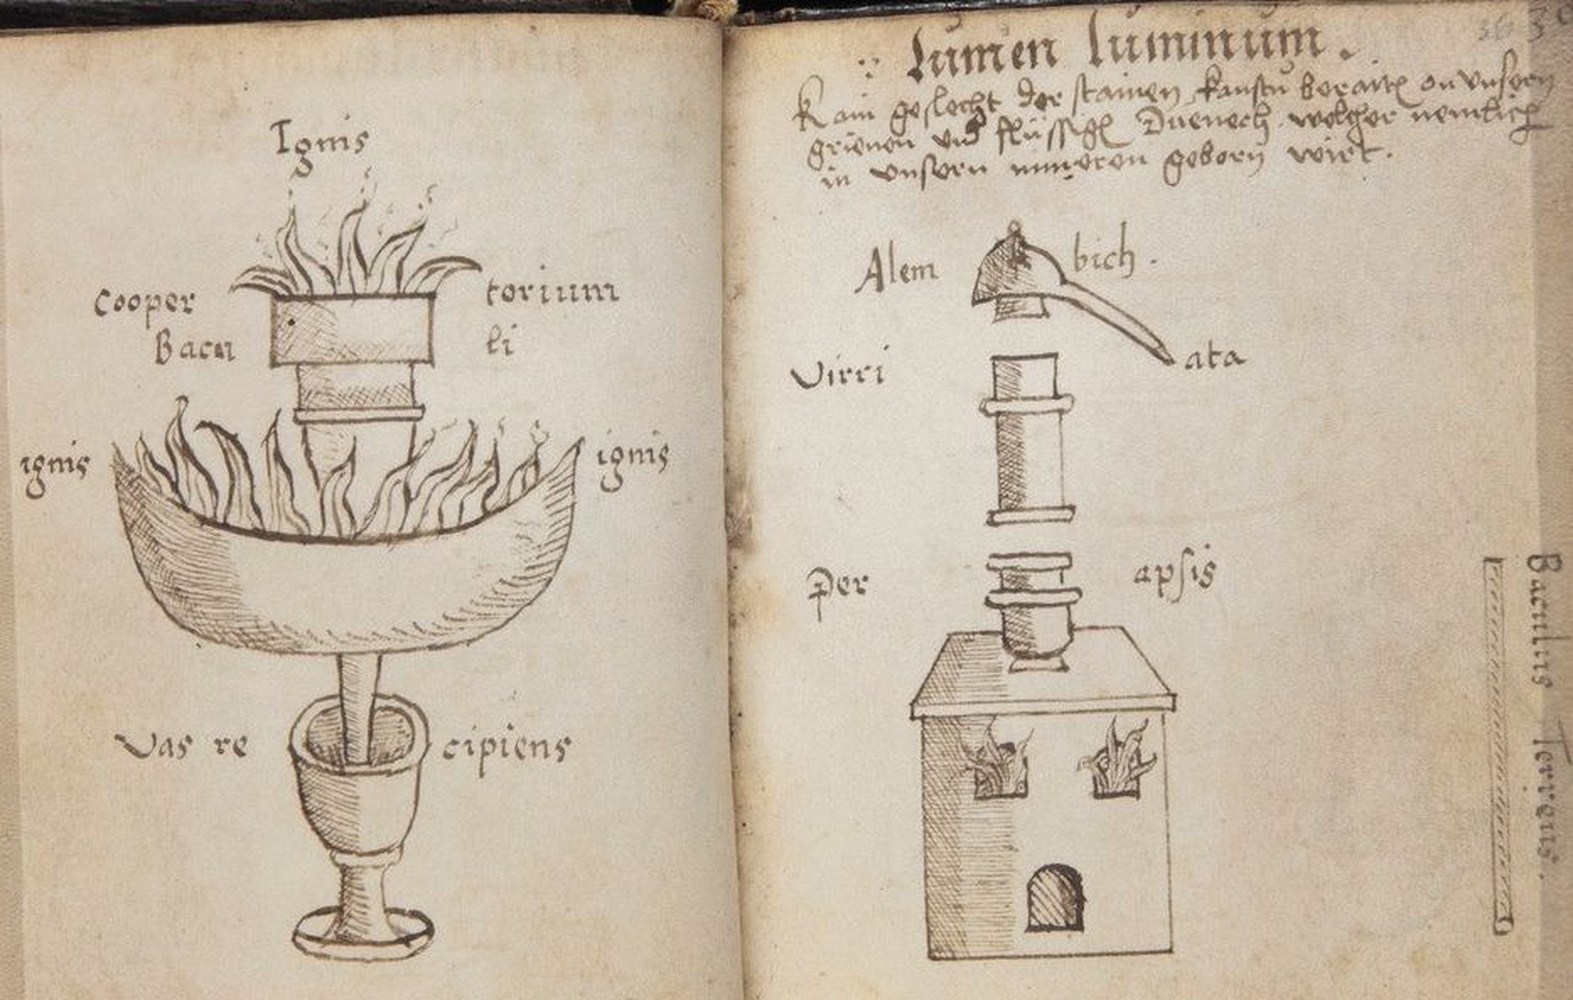 Ignis
Cooper torium
Bacu li
ignis ignis
Vas re cipiens
Lumen luminum.
Kain geslecht der stainen kanstu beraitē on unsern
grienen und flüssigē Duenech welcher nemlich
in unsern mineren geborn wirt.
Alem bich.
Vitri ata
Per apsis
Baculus Terreus.